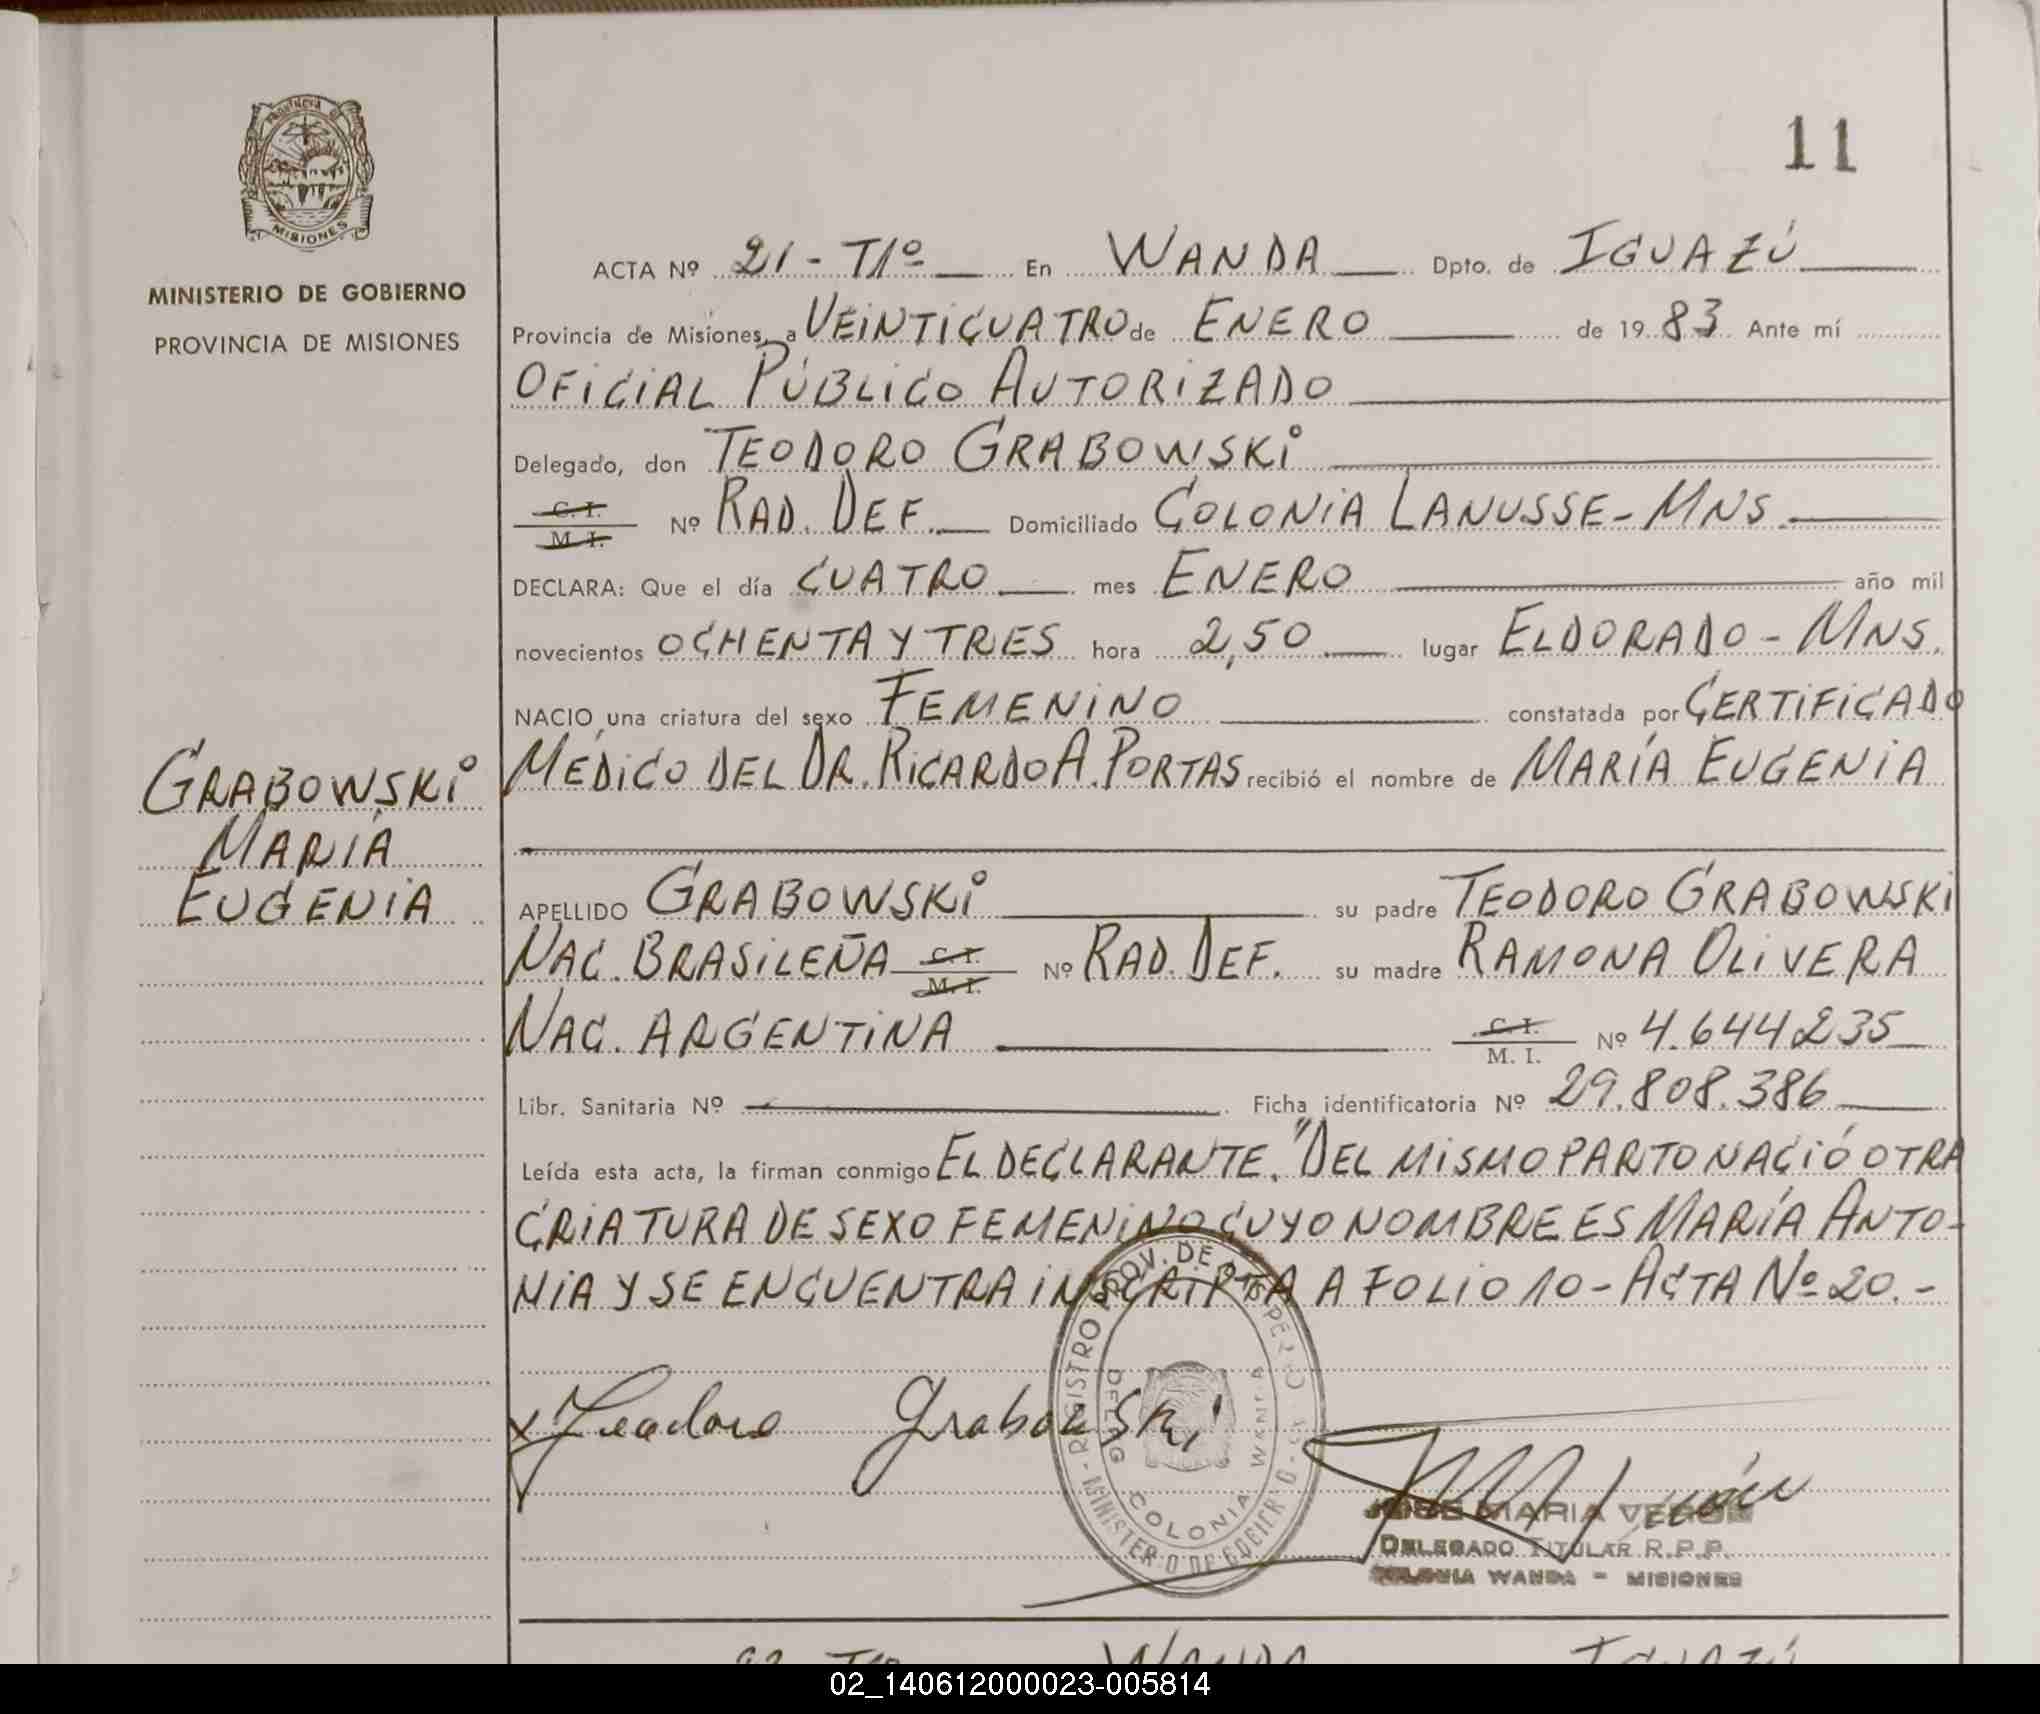 11
PROVINCIA DE
MISIONES
MINISTERIO DE GOBIERNO
PROVINCIA DE MISIONES
ACTA Nº 21 - T1º En WANDA Dpto. de IGUAZÚ
Provincia de Misiones, a VEINTICUATRO de ENERO de 1983 Ante mí
OFICIAL PÚBLICO AUTORIZADO
Delegado, don TEODORO GRABOWSKI
C. I. M. I. Nº RAD. DEF. Domiciliado COLONIA LANUSSE - MNS.
DECLARA: Que el día CUATRO mes ENERO año mil
novecientos OCHENTA Y TRES hora 2,50 lugar ELDORADO - MNS.
NACIO una criatura del sexo FEMENINO constatada por CERTIFICADO
MÉDICO DEL DR. RICARDO A. PORTAS recibió el nombre de MARÍA EUGENIA
GRABOWSKI
MARÍA
EUGENIA
APELLIDO GRABOWSKI su padre TEODORO GRABOWSKI
NAC. BRASILEÑA C. I. M. I. Nº RAD. DEF. su madre RAMONA OLIVERA
NAC. ARGENTINA C. I. M. I. Nº 4.644235
Libr. Sanitaria Nº Ficha identificatoria Nº 29.808.386
Leída esta acta, la firman conmigo EL DECLARANTE. "DEL MISMO PARTO NACIÓ OTRA
CRIATURA DE SEXO FEMENINO CUYO NOMBRE ES MARÍA ANTO-
NIA Y SE ENCUENTRA INSCRIPTA A FOLIO 10 - ACTA Nº 20.-
x Teodoro Grabowski
REGISTRO PROV. DE
DELEG COLONIA WANDA
JOSE MARIA VERON
DELEGADO TITULAR R.P.P.
COLONIA WANDA - MISIONES
WANDA IGUAZÚ
02_140612000023-005814